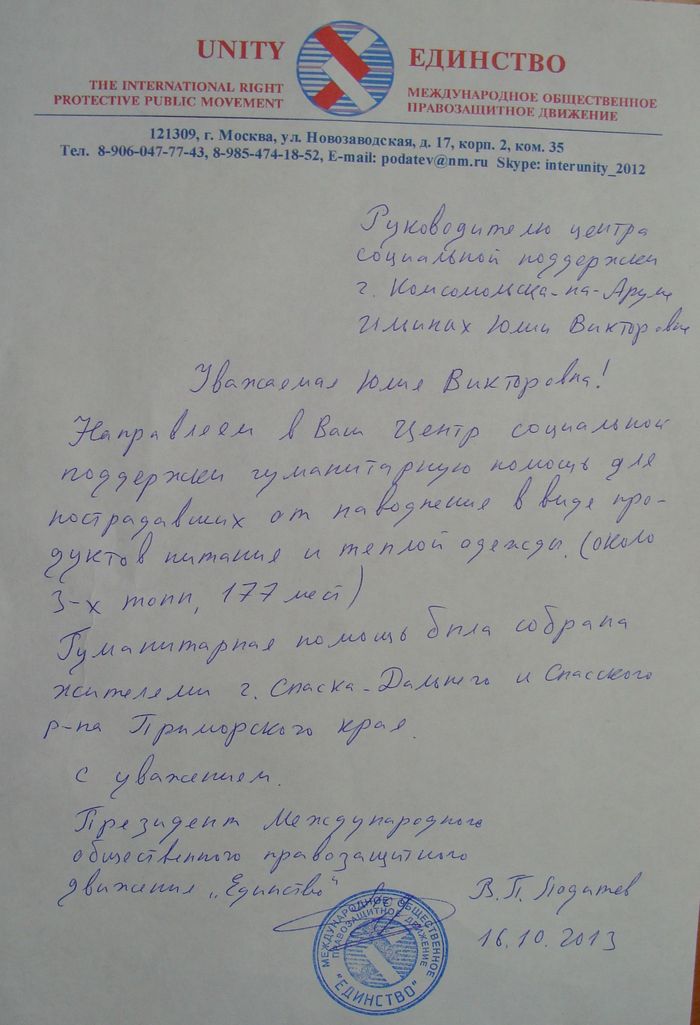 UNITY
THE INTERNATIONAL RIGHT
PROTECTIVE PUBLIC MOVEMENT
ЕДИНСТВО
МЕЖДУНАРОДНОЕ ОБЩЕСТВЕННОЕ
ПРАВОЗАЩИТНОЕ ДВИЖЕНИЕ
121309, г. Москва, ул. Новозаводская, д. 17, корп. 2, ком. 35
Тел. 8-906-047-77-43, 8-985-474-18-52, E-mail: podatev@nm.ru Skype: interunity_2012
Руководителю центра
социальной поддержки
г. Комсомольска-на-Амуре
Юлии Викторовне
Уважаемая Юлия Викторовна!
Направляем в Ваш Центр социальной
поддержки гуманитарную помощь для
пострадавших от наводнения в виде про-
дуктов питания и теплой одежды. (около
3-х тонн, 177 мест)
Гуманитарная помощь была собрана
жителями г. Спаска-Дальнего и Спасского
р-на Приморского края.
С уважением.
Президент Международного
общественного правозащитного
движения „Единство"
В.П. Податев
16.10.2013
МЕЖДУНАРОДНОЕ ОБЩЕСТВЕННОЕ
ПРАВОЗАЩИТНОЕ ДВИЖЕНИЕ
"ЕДИНСТВО"